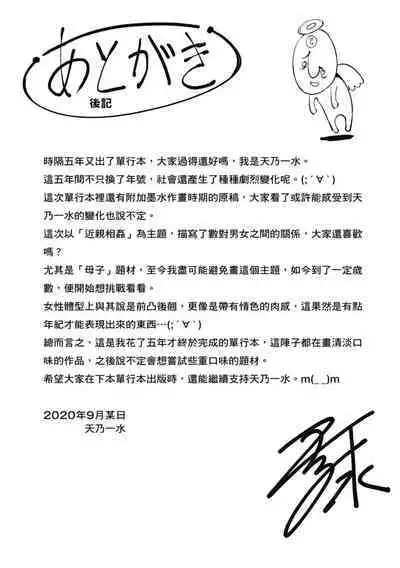 あとがき
後記
時隔五年又出了單行本，大家過得還好嗎，我是天乃一水。
這五年間不只換了年號，社會還產生了種種劇烈變化呢。(;´∀`)
這次單行本裡還有附加墨水作畫時期的原稿，大家看了或許能感受到天
乃一水的變化也說不定。
這次以「近親相姦」為主題，描寫了數對男女之間的關係，大家還喜歡
嗎？
尤其是「母子」題材，至今我盡可能避免畫這個主題，如今到了一定歲
數，便開始想挑戰看看。
女性體型上與其說是前凸後翹，更像是帶有情色的肉感，這果然是有點
年紀才能表現出來的東西…(;´∀`)
總而言之、這是我花了五年才終於完成的單行本，這陣子都在畫清淡口
味的作品，之後說不定會想嘗試些重口味的題材。
希望大家在下本單行本出版時，還能繼續支持天乃一水。m(_ _)m
2020年9月某日
天乃一水